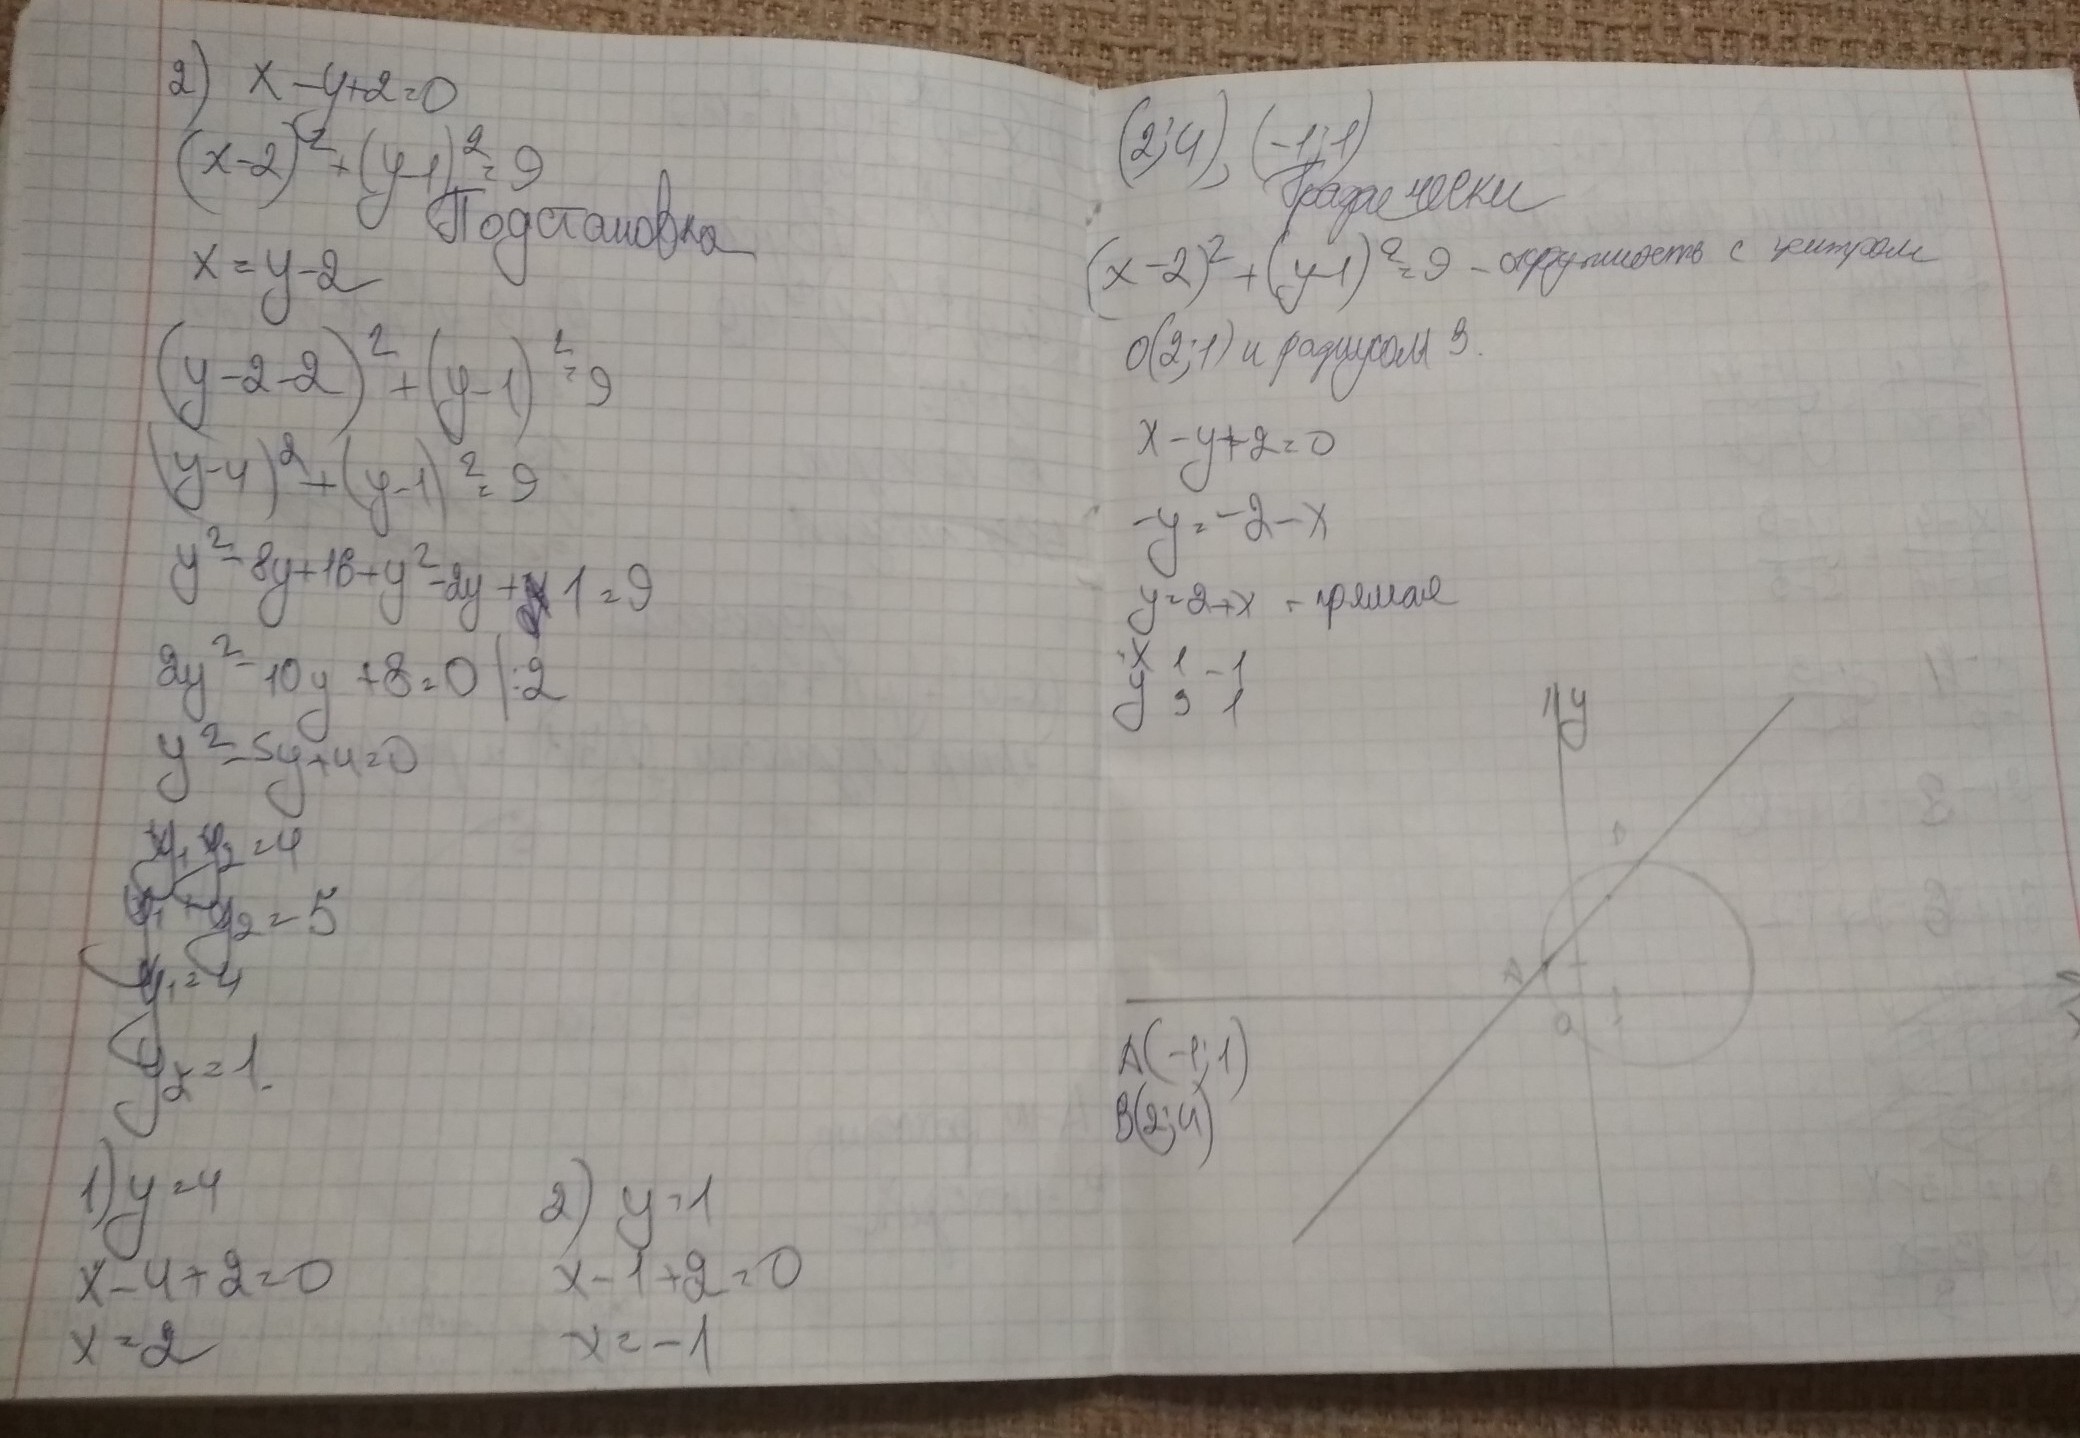 2) x-y+2=0
(x-2)²+(y-1)²=9
Подстановка
x=y-2
(y-2-2)²+(y-1)²=9
(y-4)²+(y-1)²=9
y²-8y+16+y²-2y+1=9
2y²-10y+8=0 |:2
y²-5y+4=0
y₁ y₂=4
y₁+y₂=5
y₁=4
y₂=1.
1) y=4
x-4+2=0
x=2
2) y=1
x-1+2=0
x=-1
(2;4), (-1;1)
Графически
(x-2)²+(y-1)²=9 - окружность с центром
O(2;1) и радиусом 3.
x-y+2=0
-y=-2-x
y=2+x - прямая
x 1 -1
y 3 1
y
A
0
x
A(-1;1)
B(2;4)